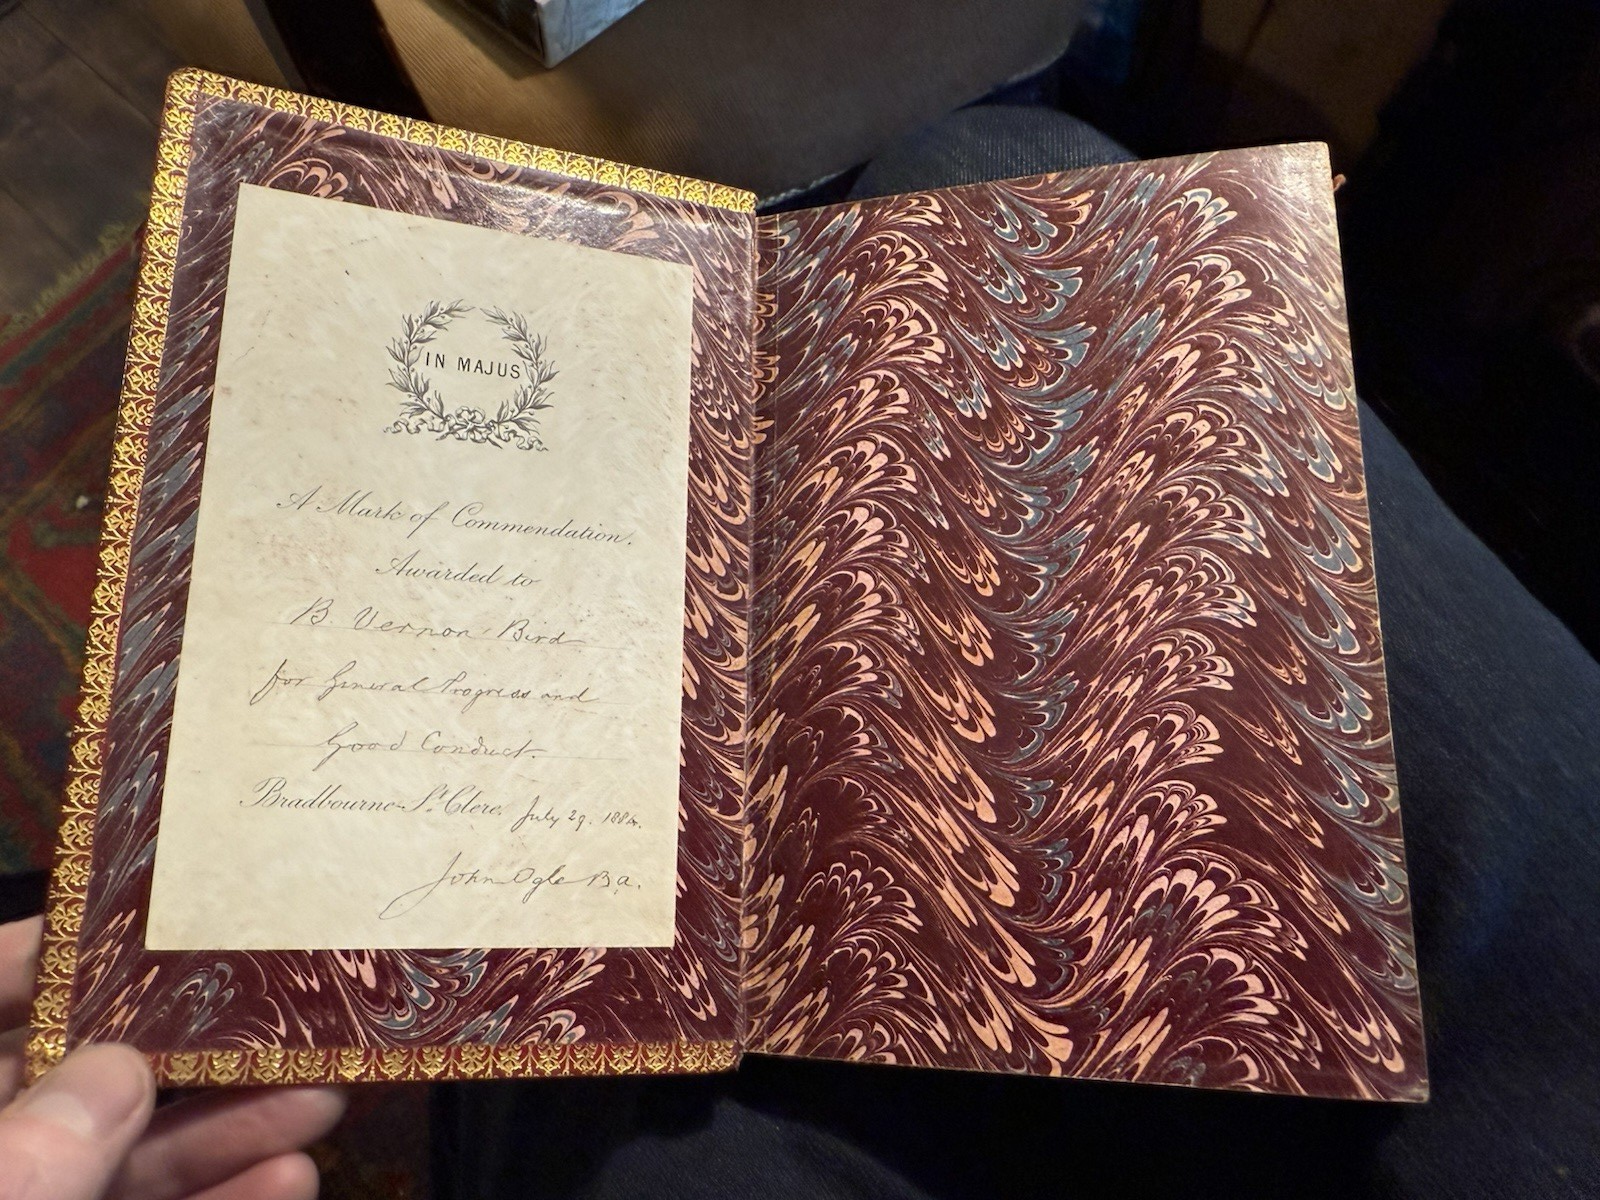 IN MAJUS
A Mark of Commendation.
Awarded to
B. Vernon Bird
for General Progress and
Good Conduct.
Bradbourne-St. Clere. July 29. 1884.
John Ogle Ba.